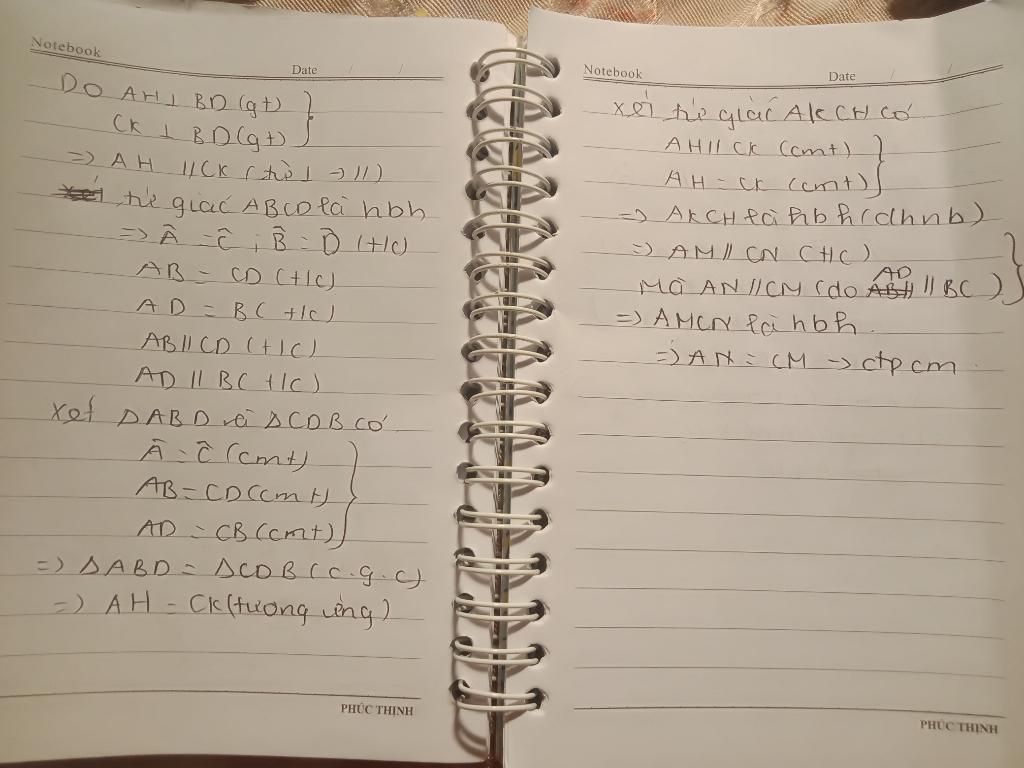 Notebook
Date / /
DO AH ⊥ BD (gt)
CK ⊥ BD (gt)
=> AH // CK (từ ⊥ → //)
tứ giác ABCD là hbh
=> Â = Ĉ ; B̂ = D̂ (t/c)
AB = CD (t/c)
AD = BC (t/c)
AB // CD (t/c)
AD // BC (t/c)
Xét ΔABD và ΔCDB có
Â = Ĉ (cmt)
AB = CD (cmt)
AD = CB (cmt)
=> ΔABD = ΔCDB (c.g.c)
=> AH = CK (tương ứng)
PHÚC THỊNH
Notebook
Date / /
xét tứ giác AKCH có
AH // CK (cmt)
AH = CK (cmt)
=> AKCH là hbh (dhnb)
=> AM // CN (t/c)
Mà AN // CM (do AD // BC)
=> AMCN là hbh.
=> AN = CM → đpcm.
PHÚC THỊNH